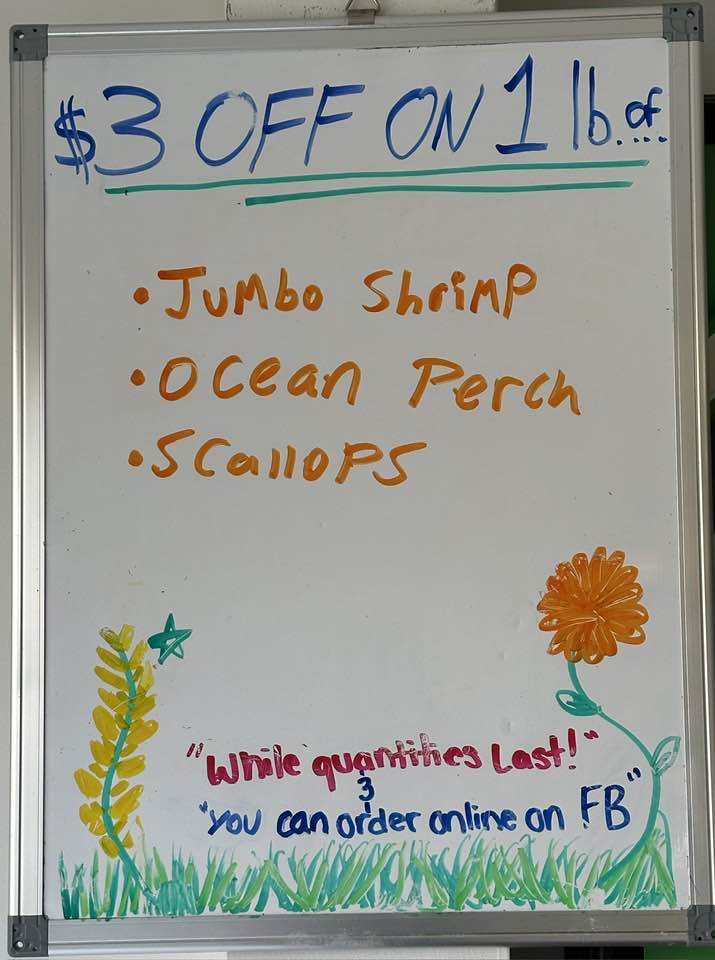 $3 OFF ON 1 lb. of....
• Jumbo Shrimp
• Ocean Perch
• Scallops
"While quantities Last!"
3
"you can order online on FB"